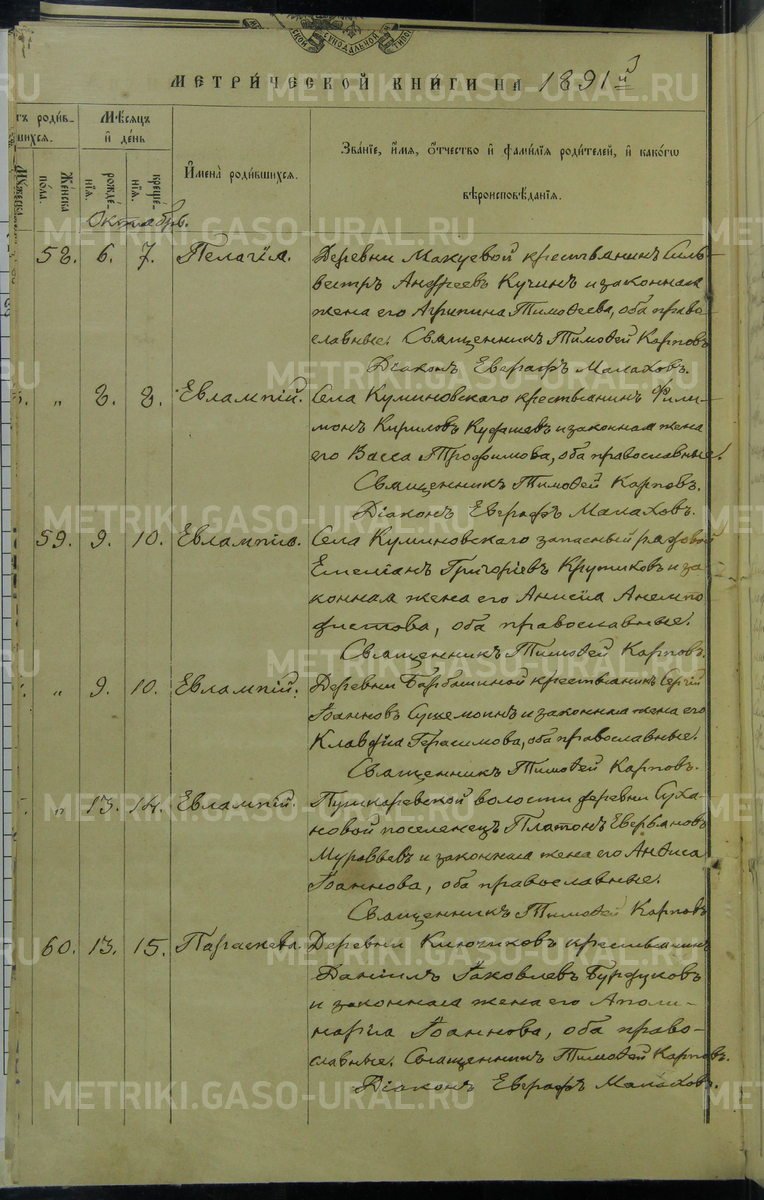 МЕТРИ́ЧЕСКОЙ КНИ́ГИ НА 1891й
родив-
шихся.
Мѣсяцъ
и де́нь
Же́нска
по́ла.
рожде́-
нїѧ.
креще́-
нїѧ.
И҆мена̀ роди́вшихсѧ.
Зва́нїе, и҆́мѧ, ѻ҆́тчество и҆ фами́лїѧ роди́телей, и҆ како́гѡ
вѣроисповѣ́данїѧ.
Октябрь.
58. 6. 7. Пелагія. Деревни Макуевой крестьянинъ Силь-
вестръ Андреевъ Кучинъ и законная
жена его Агрипина Тимоѳеева, оба право
славные. Священникъ Тимоѳей Карповъ
Діаконъ Евграфъ Малаховъ.
„ 8. 8. Евлампій. Села Куминовскаго крестьянинъ Фили-
монъ Кириловъ и законная жена
его Васса Трофимова, оба православные.
Священникъ Тимоѳей Карповъ.
Діаконъ Евграфъ Малаховъ.
59. 9. 10. Евлампія. Села Куминовскаго запасный рядовой
Емеліанъ Григорієвъ Крутиковъ и за
конная жена его Анисія
оба православные.
Священникъ Тимоѳей Карповъ.
„ 9. 10. Евлампій. Деревни Барбашиной крестьянинъ Сергій
Іоанновъ и законная жена его
Клавдіа Герасимова, оба православные.
Священникъ Тимоѳей Карповъ.
„ 13. 14. Евлампій. Пушкаревской волости деревни Суха-
новой поселенецъ Платонъ
Муравьевъ и законная жена его
Іоаннова, оба православные.
Священникъ Тимоѳей Карповъ
60. 13. 15. Параскева. Деревни Ключиковъ крестьянинъ
Даніилъ Іаковлевъ Бурдуковъ
и законная жена его Аполи-
нарія Іоаннова, оба право-
славные. Священникъ Тимоѳей Карповъ.
Діаконъ Евграфъ Малаховъ.
METRIKI.GASO-URAL.RU